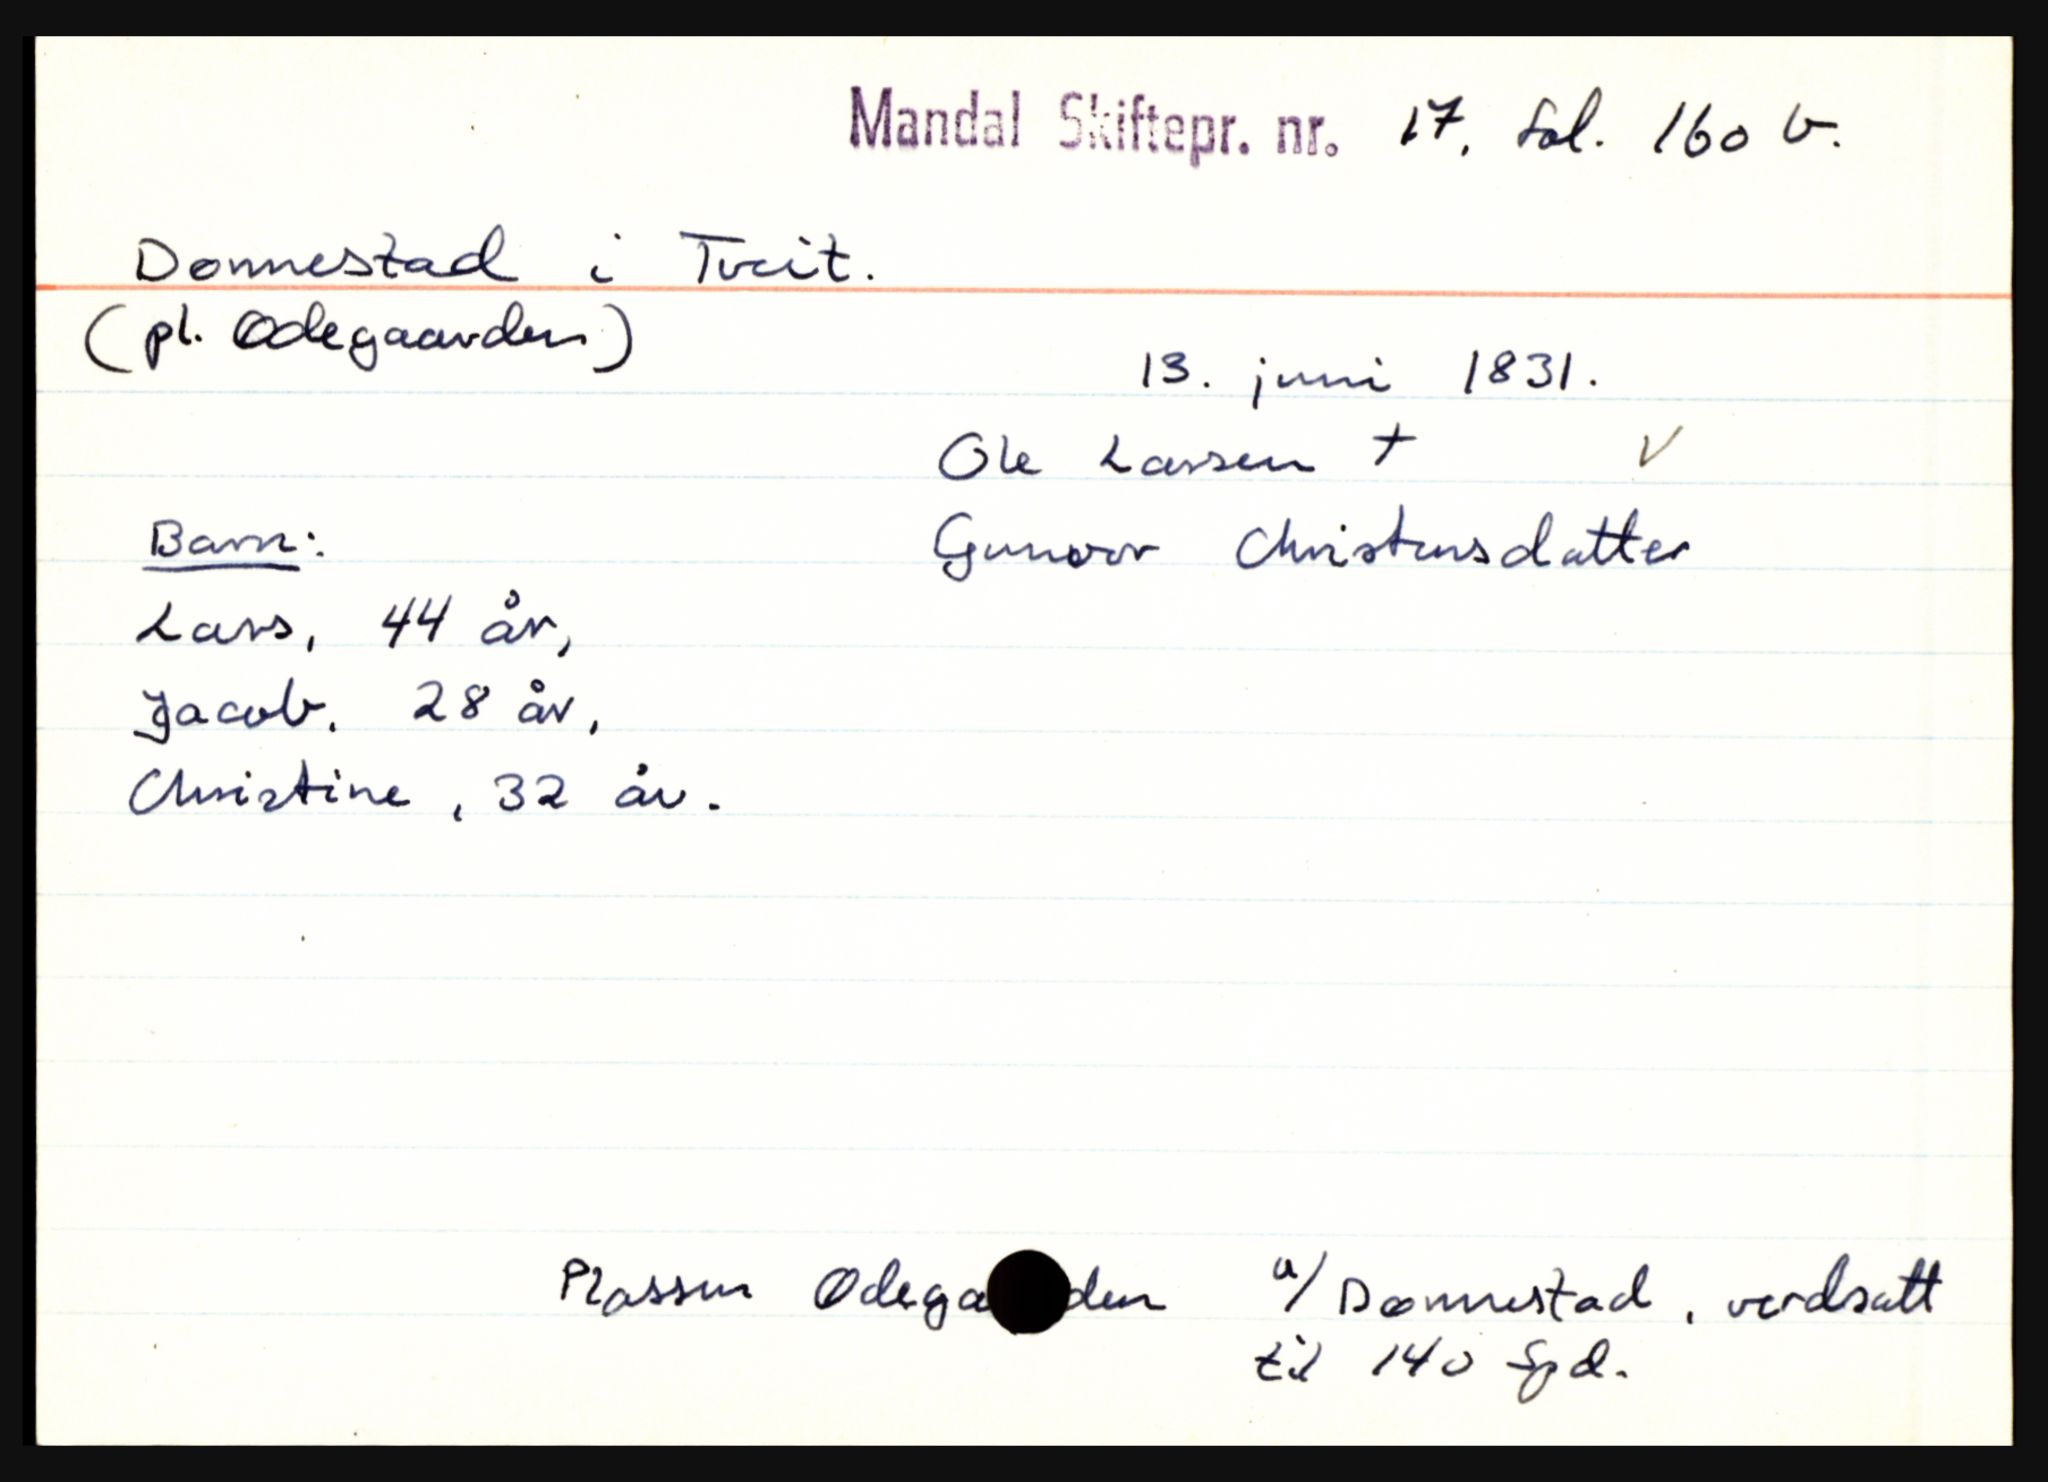 Mandal Skiftepr. nr. 17. fol. 160 b.
Dønnestad i Tveit.
(pl. Ødegaarden)
13. juni 1831.
Ole Larsen † V
Gunvor Christensdatter
Barn:
Lars, 44 år,
Jacob, 28 år,
Christine, 32 år.
Plassen Ødega den u/ Dønnestad, verdsatt
til 140 Spd.